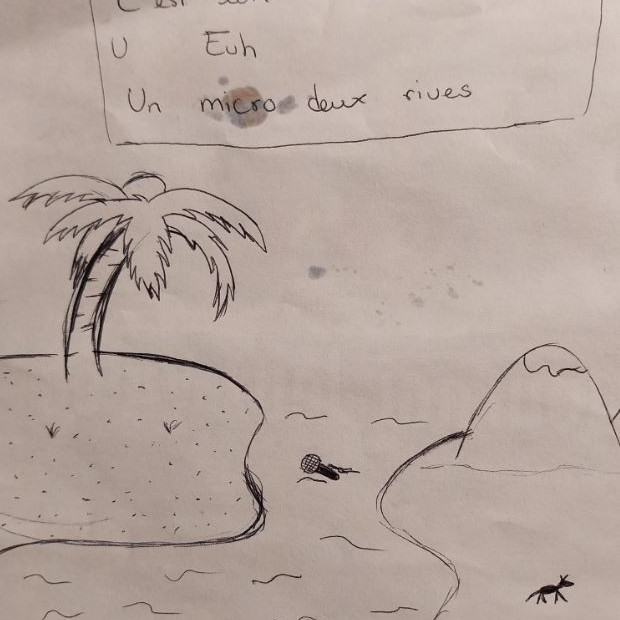 C'est
U Euh
Un micro deux rives